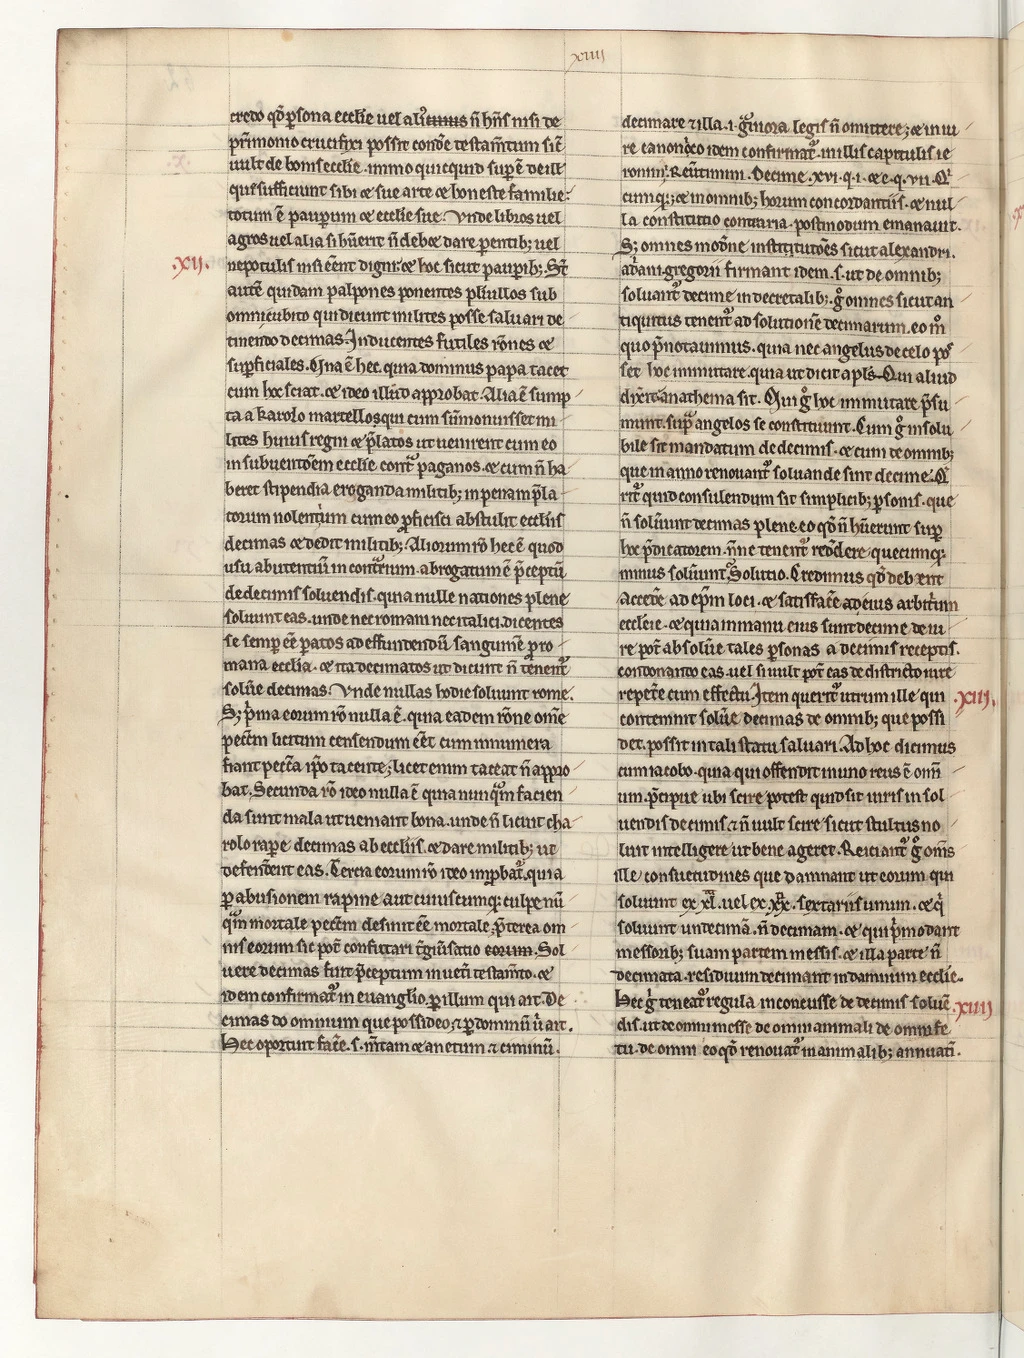 xiiii
credo qđ ꝑsona ecclie uel alt̾ỉ ñ hñs nisi de
pr̃imonio crucifixi possit condẽ testam̃tum sic̃
uult de bonis ecclie. immo quicquid suꝑ ẽ deill̃
que sufficiunt sibi ⁊ sue arte ⁊ honeste familie.
totum ẽ pauꝑum ⁊ ecclie sue. Vnde libros uel
agros uel alia si hũerit ñ debet dare ꝑentib; uel
.xij.
nepotulis nisi eẽnt digni ⁊ hoc sicut pauꝑib; St̃
autẽ quidam palpones ponentes puluillos sub
omni cubito qui dicunt milites posse saluari de
tinendo decimas. Inducentes futiles rõnes ⁊
suꝑficiales. Una ẽ hec. quia dominus papa tacet
cum hoc sciat. ⁊ ideo illud approbat. Alia ẽ sump
ta a karolo martello. qui cum sũmonuisset mi
lites huius regni ⁊ p̃latos ut uenirent cum eo
in subuentõem ecclie cont̃ paganos. ⁊ cum ñ ha
beret stipendia eroganda militib; in penam p̃la
torum nolentium cum eo ꝓficisci abstulit ecclĩis
decimas ⁊ dedit militib; Aliorum rõ hec ẽ quod
usu abutentiũ in cont̃rium. abrogatum ẽ p̃ceptũ
de decimis soluendis. quia nulle nationes plene
soluunt eas. unde nec romani nec italici dicentes
se semꝑ eẽ paratos ad effundendũ sanguinẽ pro
mana ecclia. ⁊ ita decimatos ut dicunt ñ tenent̃
solũe decimas. Vnde nullas hodie soluunt rome.
S; p̃ma eorum rõ nulla ẽ. quia eadem rõne om̃e
pecc̃m licitum censendum eẽt cum innumera
fiant pecc̃a ip̃o tacente; licet enim taceat ñ appro
bat. Secunda rõ ideo nulla ẽ quia nunq̃m facien
da sunt mala ut ueniant bona. unde ñ licuit cha
rolo raꝑe decimas ab ecclĩis. ⁊ dare militib; ut
defendent eas. Tercia eorum rõ ideo imꝓbat̃. quia
ꝑ abusionem rapine aut cuiuscumq; culpe nũ
q̃m mortale pecc̃m desinit eẽ mortale. p̃terea om
nis eorum sic pot̃ confutari t̃giũsatio eorum. Sol
uere decimas fuit p̃ceptum in uet̃i testam̃to. ⁊
idem confirmat̃ in euanglio. ꝑ illum qui ait. De
cimas do omnium que possideo. ⁊ ꝑ dominũ ũ ait.
Hec oportuit fac̃e. s. m̃tam ⁊ anetum ⁊ ciminũ.
decimare ⁊ illa. i. g̃uiora legis ñ omittere; ⁊ in iu
re canonico idem confirmat̃. in illis capitulis ie
ronimi. Reũtimini. Decime .xvi. q. i. ⁊ e. q. vii. Q̃
cumq; ⁊ in omnib; horum concordantiis. ⁊ nul
la constitutio contraria. postmodum emanauit.
S; omnes modne institutões sicut alexandri.
adani. gregorii firmant idem. s. ut de omnib;
soluant̃ decime in decretalib; g̊ omnes sicut an
tiquitus tenent̃ ad solutionẽ decimarum. eo m̊
quo p̃notauimus. quia nec angelus de celo pos̃
set hoc immutare. quia ut dicit apl̃s. Qui aliud
dixerit anathema sit. Qui g̊ hoc immutare p̃su
munt. sup̃ angelos se constituunt. Cum g̊ insolu
bile sit mandatum de decimis. ⁊ cum de omnib;
que in anno renouant̃ soluende sint decime. Q̃
rit̃ quid consulendum sit simplicib; ꝑsonis. que
ñ solũunt decimas plene. eo qđ ñ hũerunt suꝑ
hoc p̃dicatorem. ñne tenent̃ reddere quecumq;
minus solũunt. Solutio. Credimus qđ debent
accedẽ ad ep̃m loci. ⁊ satisfac̃e ad eius arbitrium
ecclĩe. ⁊ quia in manu eius sunt decime de iu
re pot̃ absolũe tales ꝑsonas a decimis receptis.
condonando eas. uel si uult pot̃ eas de districto iure
repet̃e cum effectu. Item querit̃ utrum ille qui
.xiij.
contemnit solũe decimas de omnib; que possi
det. possit in tali statu saluari. Ad hoc dicimus
cum iacobo. quia qui offendit in uno reus ẽ om̃i
um. p̃cipue ubi scire potest quid sit iuris in sol
uendis decimis. ⁊ ñ uult scire sicut stultus no
luit intelligere ut bene ageret. Reiciant̃ g̊ om̃s
ille consuetudines que damnant ut eorum qui
soluunt ex xl. uel ex xxx. sextariis unum. ⁊ q̃
soluunt undecimã. ñ decimam. ⁊ qui p̃mo dant
messorib; suam partem messis. ⁊ illa parte ñ
decimata. residuum decimant in damnum ecclie.
Hec g̊ teneat̃ regula inconcusse de decimis soluẽ
.xiiij
dis. ut de omni messe de omni animali de omni fe
tu. de omni eo qđ renouat̃ in animalib; annuati.